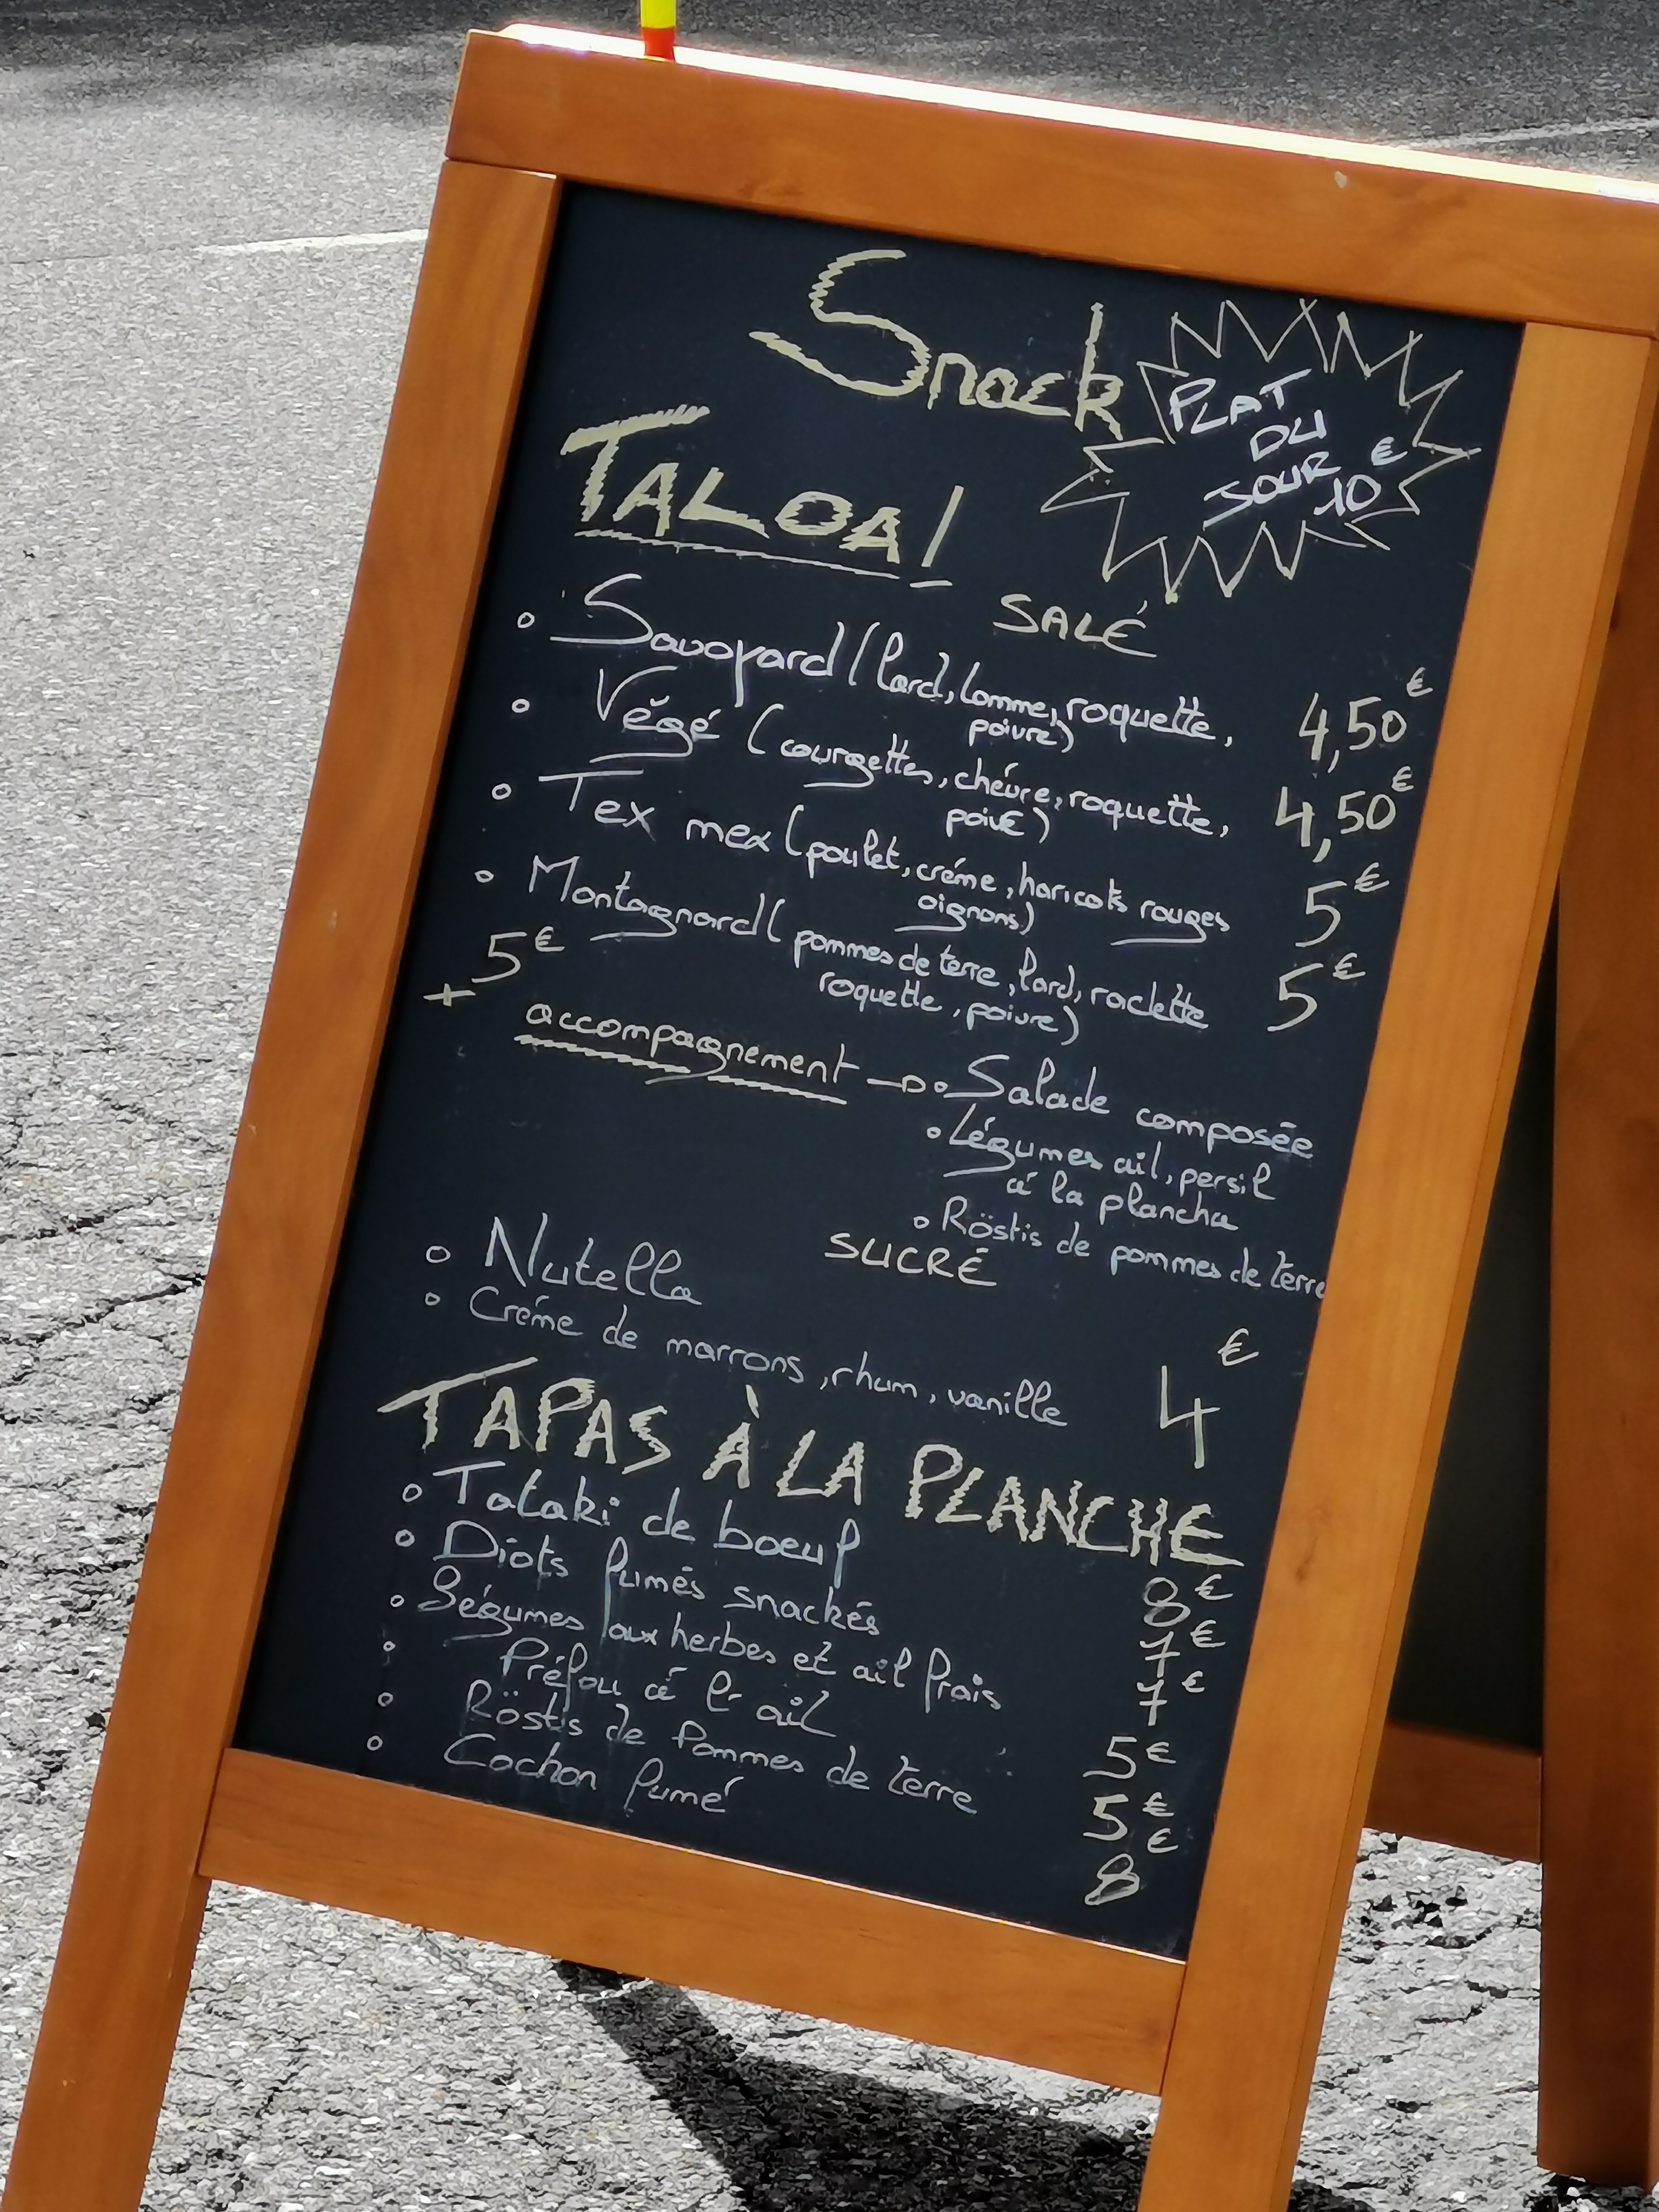 Snack
PLAT
DU
JOUR 10€
TALOA!
SALÉ
• Savoyard (lard, tomme, roquette, poivre) 4,50€
• Végé (courgettes, chévre, roquette, poivre) 4,50€
• Tex mex (poulet, créme, haricots rouges oignons) 5€
• Montagnard (pommes de terre, lard, raclette roquette, poivre) 5€
+ 5€
accompagnement → • Salade composée
• Légumes ail, persil
á la plancha
• Röstis de pommes de terre
SUCRÉ
• Nutella
• Créme de marrons, rhum, vanille 4€
TAPAS À LA PLANCHE
• Tataki de boeuf 8€
• Diots fumés snackés 7€
• Légumes aux herbes et ail frais 7€
• Préfou á l'ail 5€
• Röstis de Pommes de terre 5€
• Cochon fumé 8€